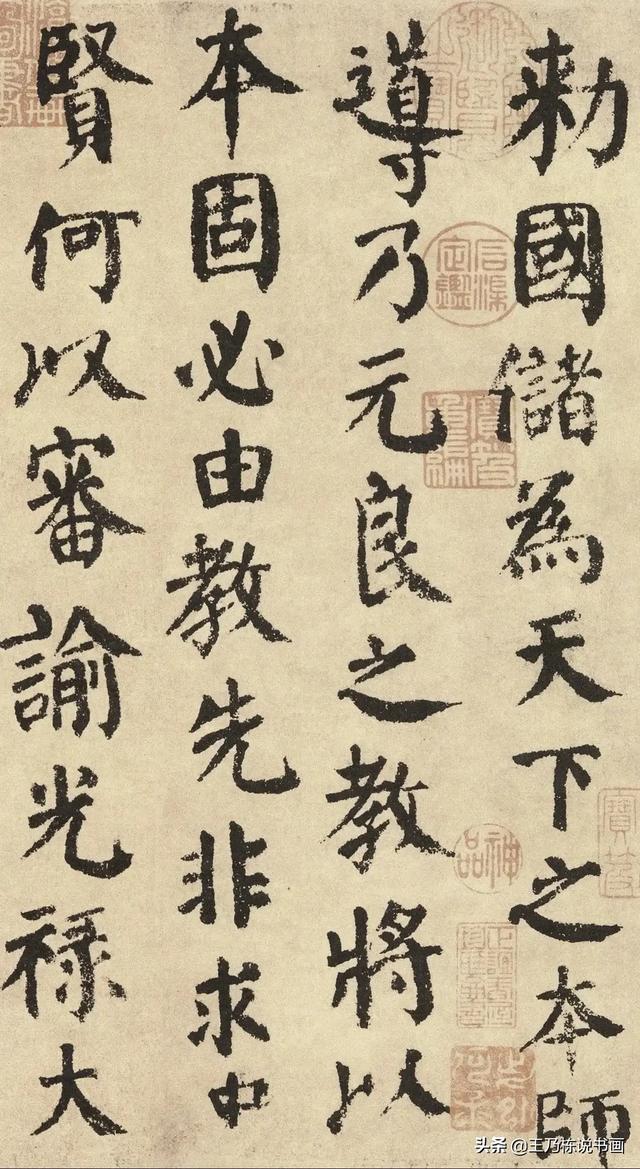 勑國儲為天下之本師
導乃元良之教將以
本固必由教先非求中
賢何以審諭光祿大
神品
頭条 @王乃栋说书画